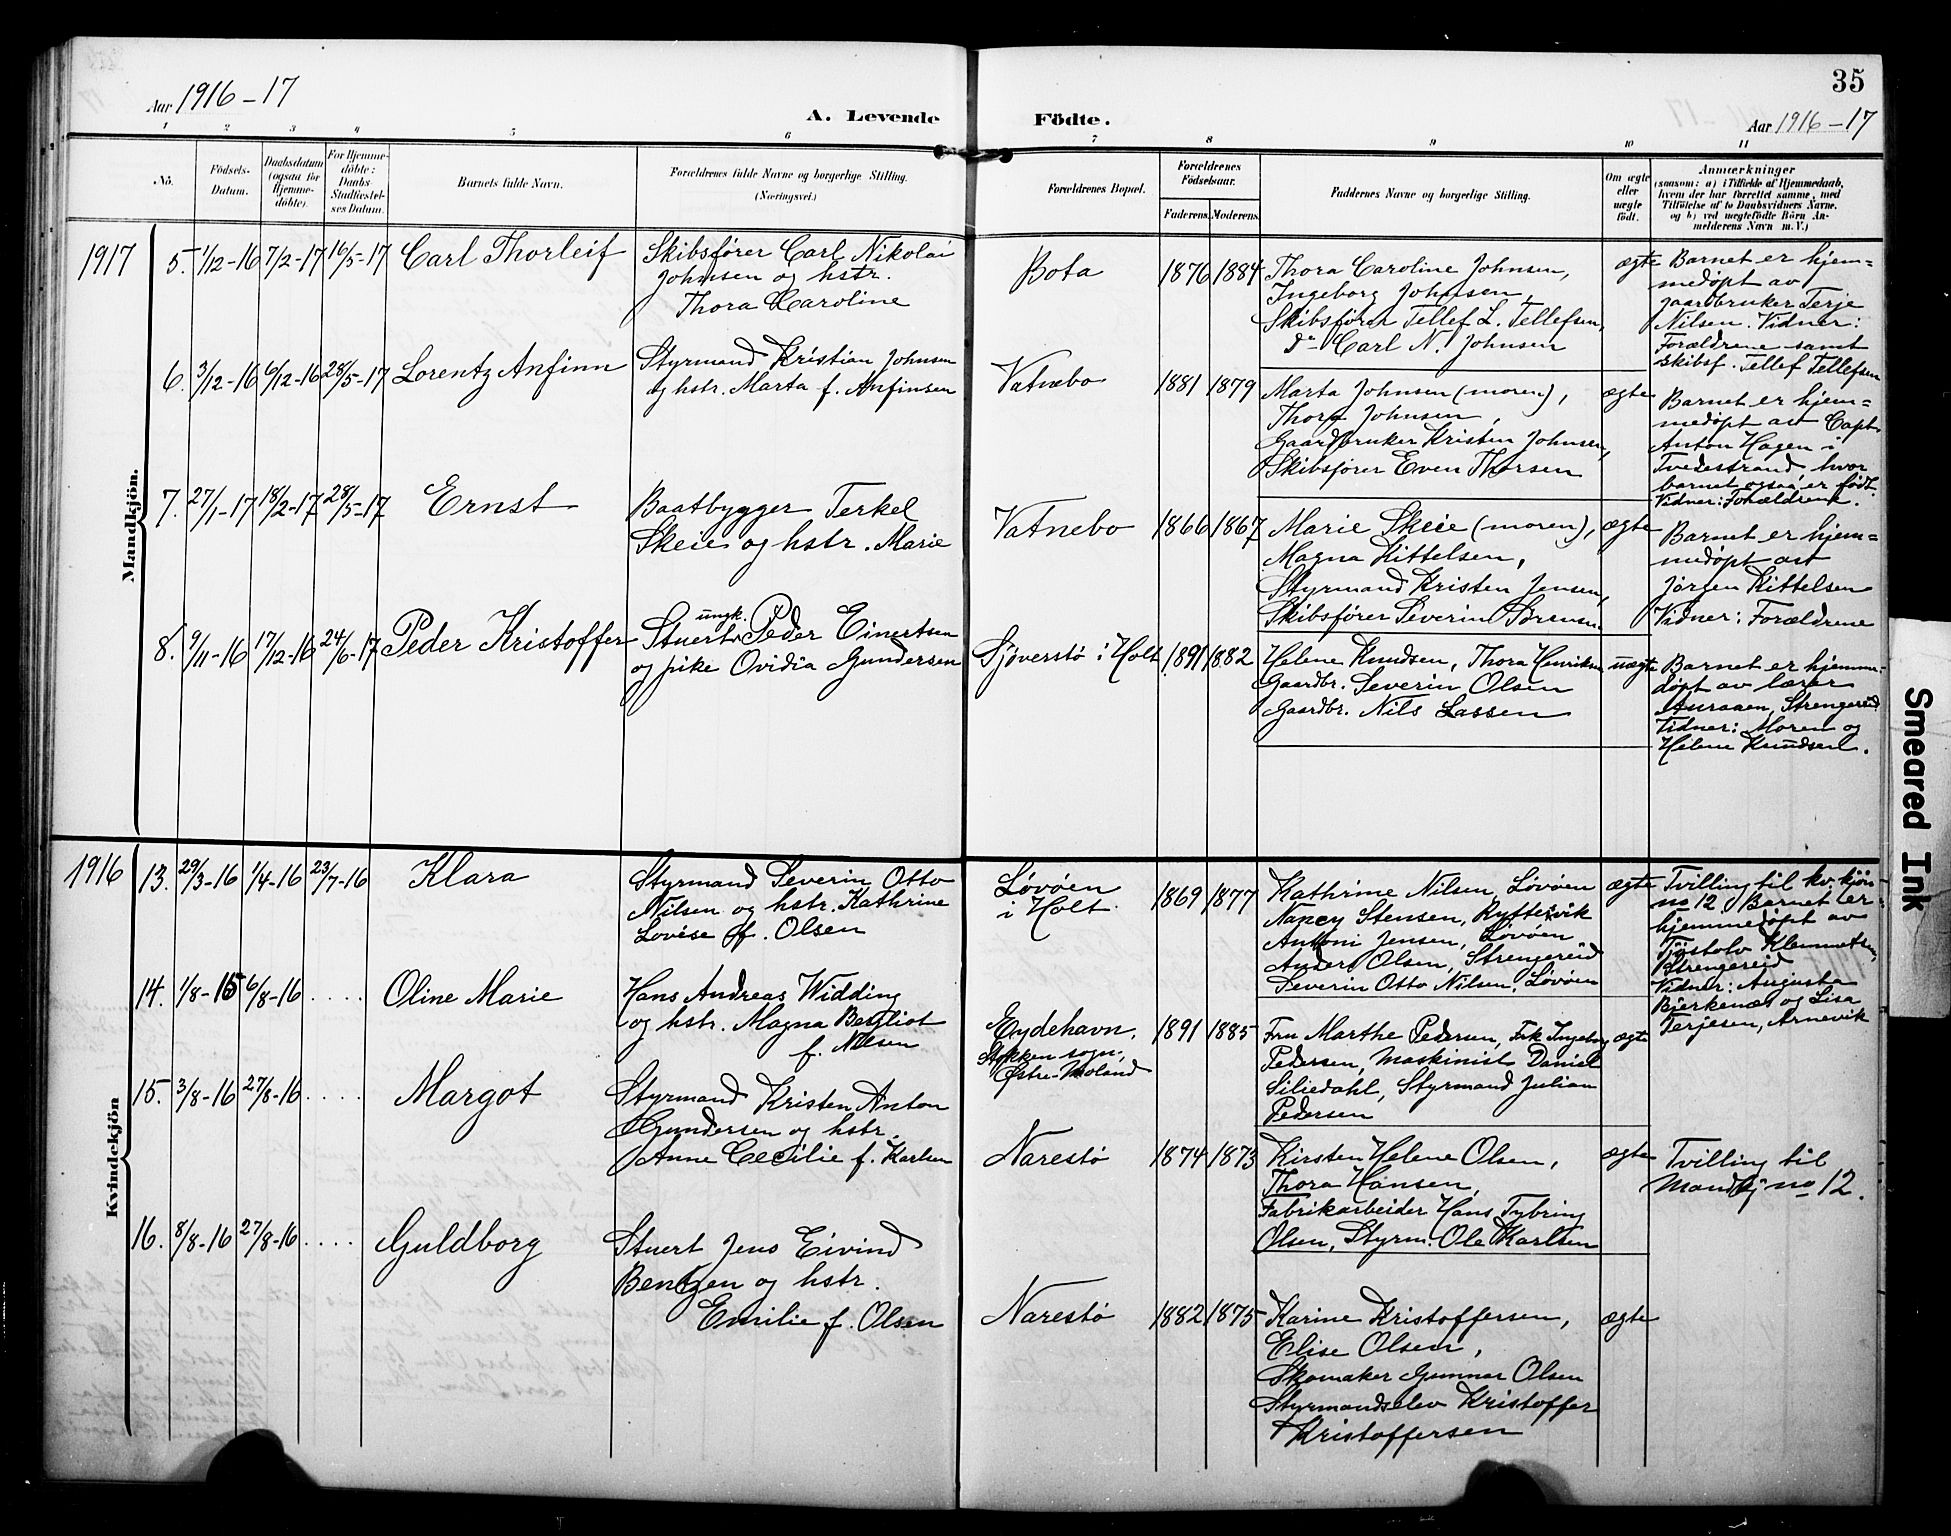 35
Aar 1916-17
A. Levende Födte.
Aar 1916-17
1 2 3 4 5 6 7 8 9 10 11
No.
Födsels-
Datum.
Daabsdatum
(ogsaa for
Hjemme-
döbte).
For Hjemme-
döbte:
Daabs-
Stadfæstel-
ses Datum.
Barnets fulde Navn.
Forældrenes fulde Navne og borgerlige Stilling.
(Næringsvei.)
Forældrenes Bopæl.
Forældrenes
Födselsaar.
Faderens. Moderens.
Faddernes Navne og borgerlige Stilling.
Om ægte
eller
uægte
födt.
Anmærkninger
(saasom: a) i Tilfælde af Hjemmedaab,
hvem der har forrettet samme, med
Tilföielse af to Daabsvidners Navne,
og b) ved uægtefödte Börn An-
melderens Navn m. V.)
Mandkjön.
1917
5. 1/12-16 7/2-17 16/5-17 Carl Thorleif
Skibsfører Carl Nikolai
Johnsen og hstr.
Thora Caroline
Bota 1876 1884
Thora Caroline Johnsen,
Ingeborg Johnsen,
Skibsfører Tellef L. Tellefsen,
Do Carl N. Johnsen
ægte
Barnet er hjem=
medøpt av
gaardbruker Terje
Nilsen. Vidner:
Forældrene samt
skibsf. Tellef Tellefsen
6. 3/12-16 6/12-16 28/5-17 Lorentz Anfinn
Styrmand Kristian Johnsen
og hstr. Marta f. Anfinsen
Vatnebo 1881 1879
Marta Johnsen (moren),
Thora Johnsen,
Gaardbruker Kristen Johnsen,
Skibsfører Even Thorsen
ægte
Barnet er hjem=
medøpt av Capt.
Anton Hagen i
Tvedestrand hvor
barnet ogsaa er født.
Vidner: Forældrene.
7. 27/1-17 18/2-17 28/5-17 Ernst
Baatbygger Terkel
Skeie og hstr. Marie
Vatnebo 1866 1867
Marie Skeie (moren),
Magna Kittelsen,
Styrmand Kristen Jensen,
Skibsfører Severin Sørensen.
ægte
Barnet er hjem=
medøpt av
Jørgen Kittelsen
Vidner: Forældrene
8. 9/11-16 17/12-16 24/6-17 Peder Kristoffer
ungk.
Stuert Peder Einertsen
og pike Ovidia Gundersen
Sjøverstø i Holt 1891 1882
Helene Knudsen, Thora Henriksen
Gaardbr. Severin Olsen
Gaardbr. Nils Lassen
uægte
Barnet er hjemme-
døpt av lærer
Auraaen, Strengereid
Vidner: Moren og
Helene Knudsen.
Kvindekjön
1916
13. 29/3-16 1/4-16 23/7-16 Klara
Styrmand Severin Otto
Nilsen og hstr. Kathrine
Lovise f. Olsen
Løvøen
i Holt.
1869 1877
Kathrine Nilsen, Løvøen
Nancy Stensen, Ryftevik
Antoni Jensen, Løvøen
Anders Olsen, Strengereid
Severin Otto Nilsen, Løvøen
ægte
Tvilling til kv. kjøn
no 12. Barnet er
hjemmedøpt av
Tjøstolv Klemmetsen,
Strengereid
Vidner: Augusta
Bjerkenæs og Lisa
Terjesen, Arnevik
14. 1/8-16 6/8-16 ....
Oline Marie
Hans Andreas Widding
og hstr. Magna Bergliot
f. Nilsen
Eydehavn,
Stokken sogn,
Østre-Moland
1891 1885
Fru Marthe Pedersen, Frk Ingeborg
Pedersen, Maskinist Daniel
Siliedahl, Styrmand Julian
Pedersen
ægte
15. 3/8-16 27/8-16 ....
Margot
Styrmand Kristen Anton
Gundersen og hstr.
Anne Cecilie f. Karlsen
Narestø 1874 1873
Kirsten Helene Olsen,
Thora Hansen,
Fabrikarbeider Hans Tybring
Olsen, Styrm. Ole Karlsen
ægte
Tvilling til
Mandkj no 12.
16. 8/8-16 27/8-16 ....
Guldborg
Stuert Jens Eivind
Bentzen og hstr.
Emilie f. Olsen
Narestø 1882 1875
Karine Kristoffersen,
Elise Olsen,
Skomaker Gunnar Olsen
Styrmandselev Kristoffer
Kristoffersen
ægte
Smeared Ink